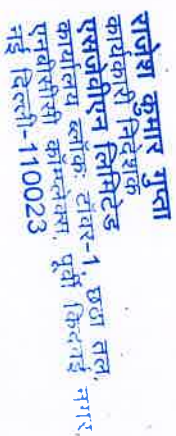 राजेश कुमार गुप्ता
कार्यकारी निदेशक
एसजेवीएन लिमिटेड
कार्यालय ब्लॉक टॉवर-1 छठा तल,
एनबीसीसी कॉम्प्लेक्स, पूर्वी किदवई नगर,
नई दिल्ली-110023